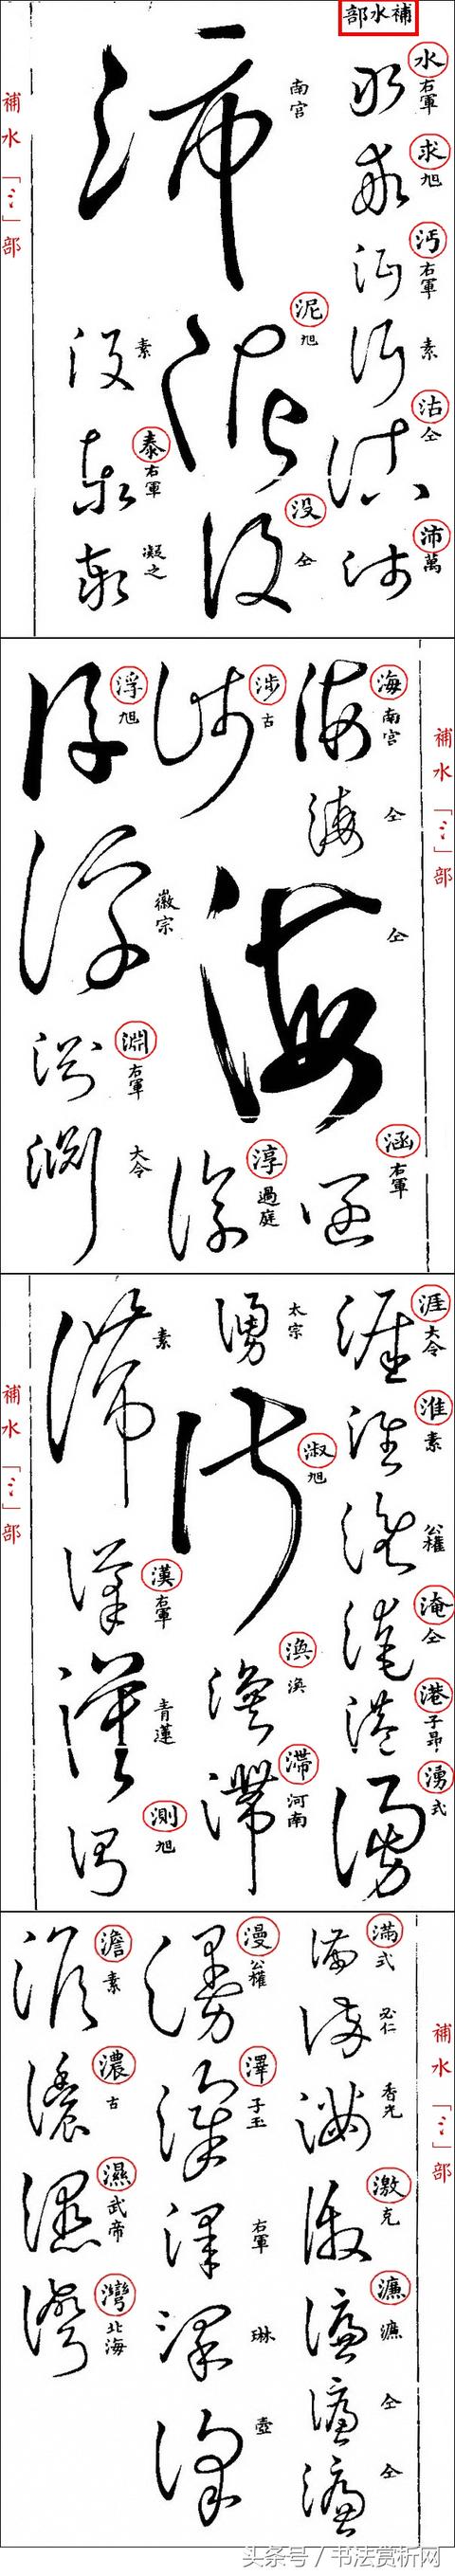 補水部
水 右軍
求 旭
沔 右軍
素
沽 仝
沛 萬
南宮
泥 旭
没 仝
素
泰 右軍
凝之
補水「氵」部
補水「氵」部
海 南宮
仝
仝
涵 右軍
涉 古
淳 過庭
浮 旭
徽宗
淵 右軍
大令
涯 大令
淮 素
公權
淹 仝
港 子昂
湧 式
太宗
淑 旭
渙 渙
滯 河南
素
漢 右軍
青蓮
測 旭
補水「氵」部
補水「氵」部
滿 式
必仁
香光
激 克
濂 濂
仝
仝
漫 公權
澤 子玉
右軍
琳
壺
澹 素
濃 古
濕 武帝
灣 北海
头条号 / 书法赏析网